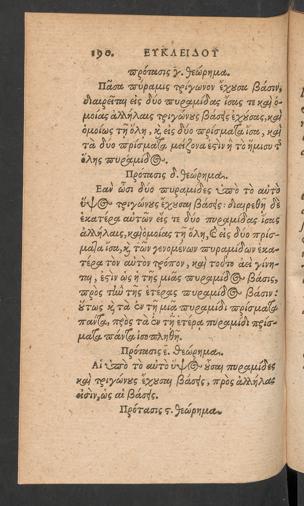 190. ΕΥΚΛΕΙΔΟΥ
πρότασις γ. θεώρημα.
Πᾶσα πύραμις τρίγωνον ἔχουσα βάσιν,
διαιρεῖται εἰς δύο πυραμίδας ἴσας τε καὶ ὁ-
μοίας ἀλλήλαις τριγώνους βάσεις ἐχούσας, καὶ
ὁμοίως τῇ ὅλῃ, καὶ εἰς δύο πρίσματα ἴσα, καὶ
τὰ δύο πρίσματα μείζονα ἐστὶν ἢ τὸ ἥμισυ τ
ὅλης πυραμίδος.
Πρότασις δ. θεώρημα.
Εὰν ὦσι δύο πυραμίδες ὑπὸ τὸ αὐτὸ
ὕψος τριγώνους ἔχουσαι βάσεις: διαιρεθῇ δὲ
ἑκατέρα αὐτῶν εἴς τε δύο πυραμίδας ἴσας
ἀλλήλαις, καὶ ὁμοίας τῇ ὅλῃ, καὶ εἰς δύο πρίσ-
ματα ἴσα, καὶ τῶν γενομένων πυραμίδων ἑκα-
τέρα τὸν αὐτὸν τρόπον, καὶ τοῦτο ἀεὶ γίνη-
ται, ἔστιν ὡς ἡ τῆς μιᾶς πυραμίδος βάσις,
πρὸς τὴν τῆς ἑτέρας πυραμίδος βάσιν:
οὕτως καὶ τὰ ἐν τῇ μιᾷ πυραμίδι πρίσματα
πάντα, πρὸς τὰ ἐν τῇ ἑτέρᾳ πυραμίδι πρίσ-
ματα πάντα ἰσοπληθῆ.
Πρότασις ε. θεώρημα.
Αἱ ὑπὸ τὸ αὐτὸ ὕψος οὖσαι πυραμίδες
καὶ τριγώνους ἔχουσαι βάσεις, πρὸς ἀλλήλας
εἰσὶν, ὡς αἱ βάσεις.
Πρότασις ϛ. θεώρημα.